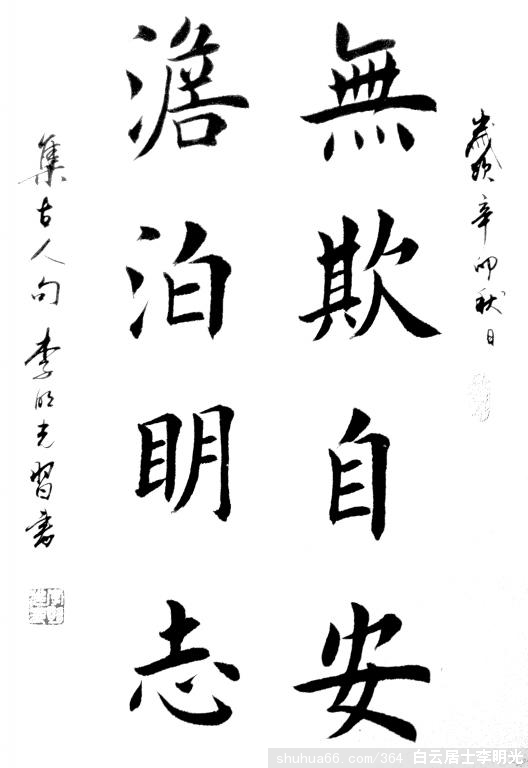 歲次辛卯秋日
無欺自安
澹泊明志
集古人句 李明光習書
shuhua66.com/364 白云居士李明光